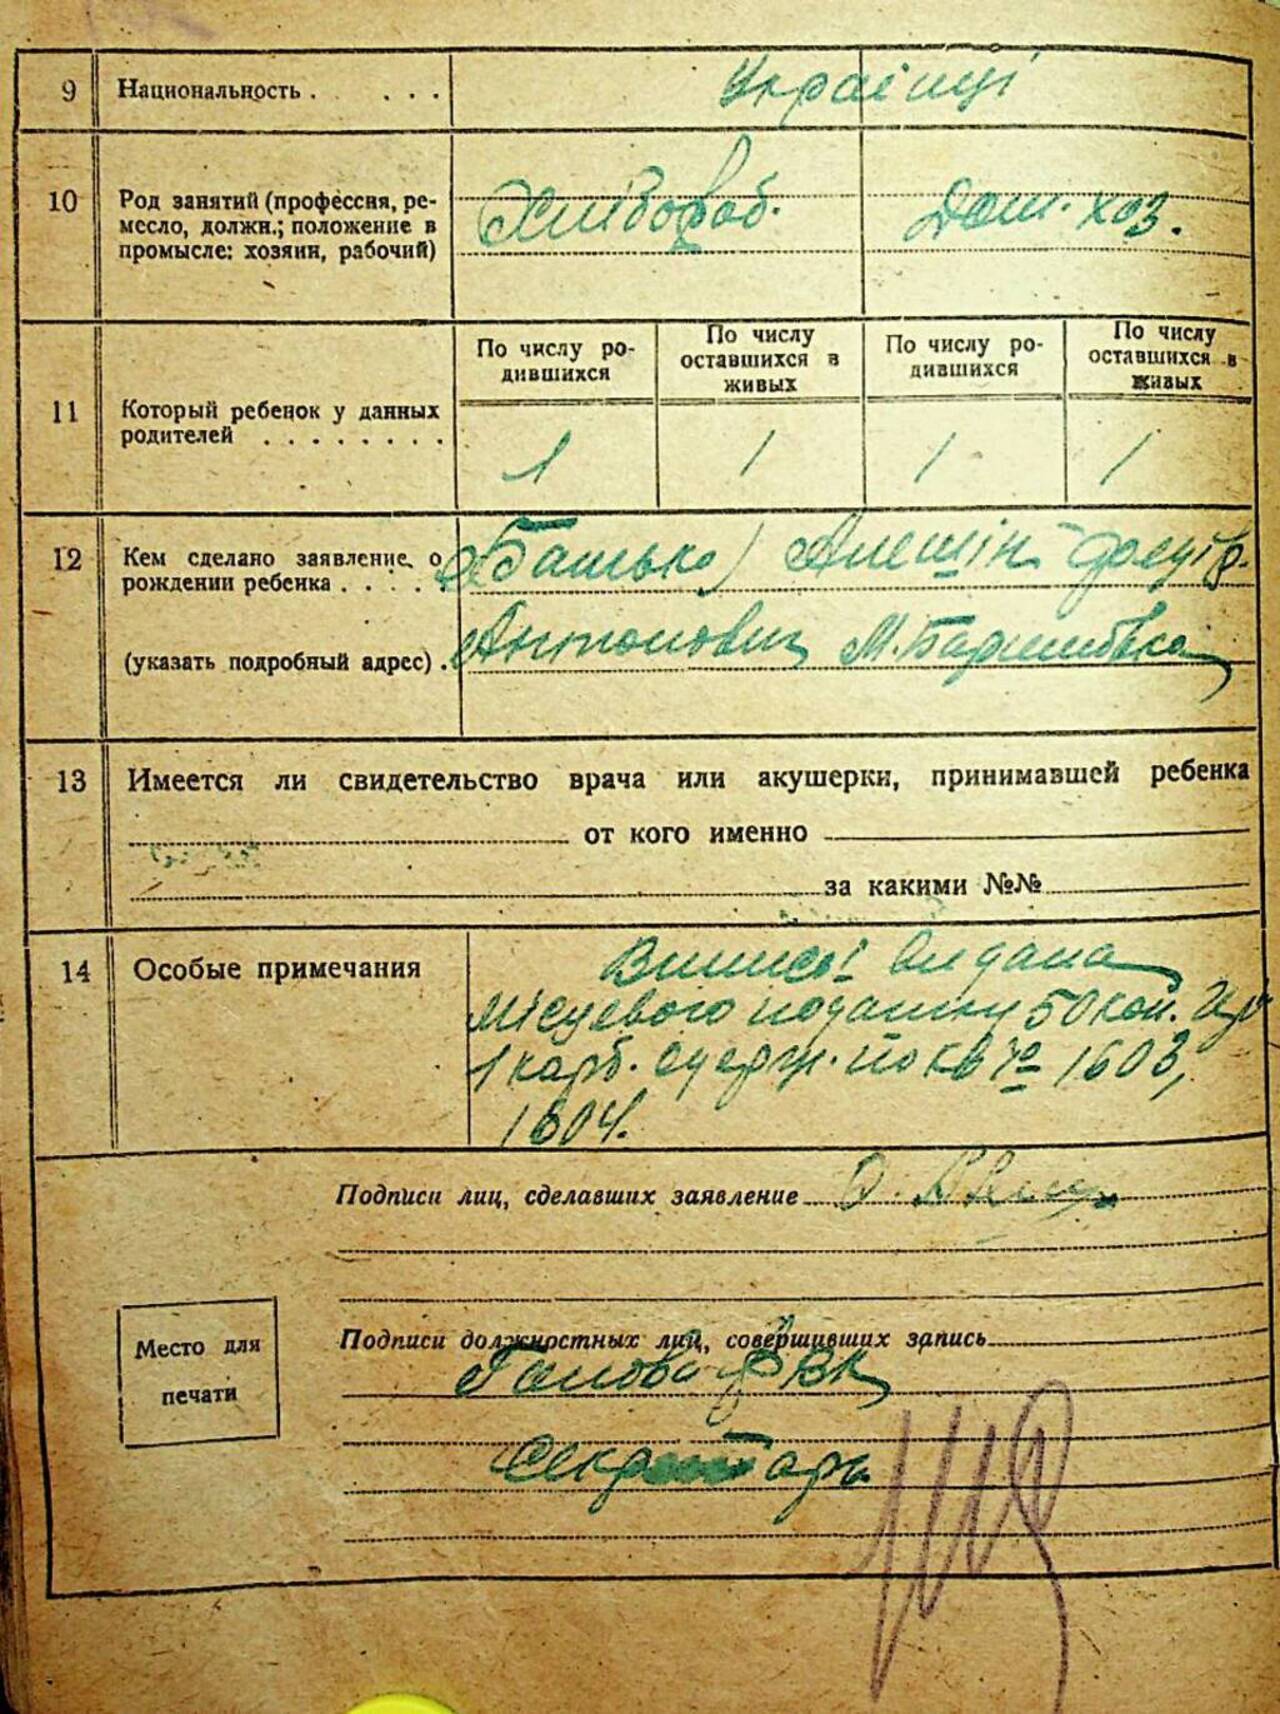 9 Национальность . . . . Українці
10 Род занятий (профессия, ре-
месло, должн.; положение в
промысле: хозяин, рабочий)
Хлібороб. Дом. хоз.
По числу ро-
дившихся
По числу
оставшихся в
живых
По числу ро-
дившихся
По числу
оставшихся в
живых
11 Который ребенок у данных
родителей . . . . . . . .
1 1 1 1
12 Кем сделано заявление о
рождении ребенка . . . .
Батько
(указать подробный адрес) .
Антонович М. Баришівка
13 Имеется ли свидетельство врача или акушерки, принимавшей ребенка
от кого именно
за какими №№
14 Особые примечания
Виписі видана
місцевого податку 50 коп.
1 карб. одерж. по кв № 1603,
1604.
Подписи лиц, сделавших заявление
Место для
печати
Подписи должностных лиц, совершивших запись
Голова
Секретарь